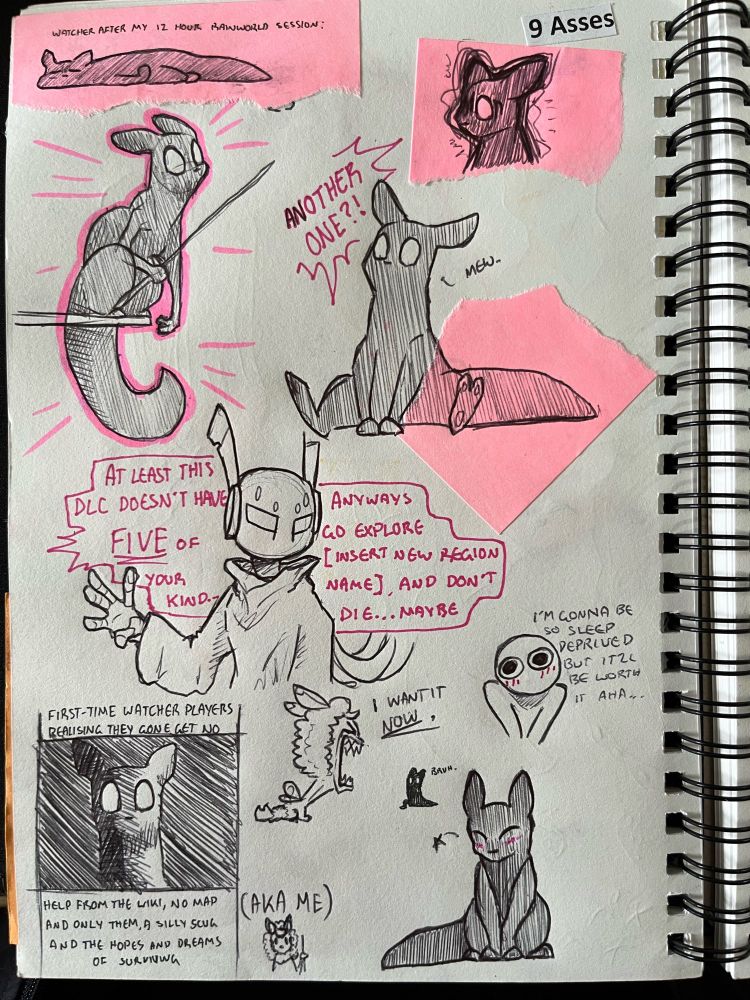 WATCHER AFTER MY 12 HOUR RAINWORLD SESSION:
9 Asses
ANOTHER
ONE?!
MEW.
AT LEAST THIS
DLC DOESN'T HAVE
FIVE OF
YOUR
KIND...
ANYWAYS
GO EXPLORE
[INSERT NEW REGION
NAME], AND DON'T
DIE... MAYBE
I'M GONNA BE
SO SLEEP
DEPRIVED
BUT IT'LL
BE WORTH
IT AHA...
I WANT IT
NOW.
FIRST-TIME WATCHER PLAYERS
REALISING THEY GONE GET NO
HELP FROM THE WIKI, NO MAP
AND ONLY THEM, A SILLY SLUG
AND THE HOPES AND DREAMS
OF SURVIVING
BRUH.
(AKA ME)